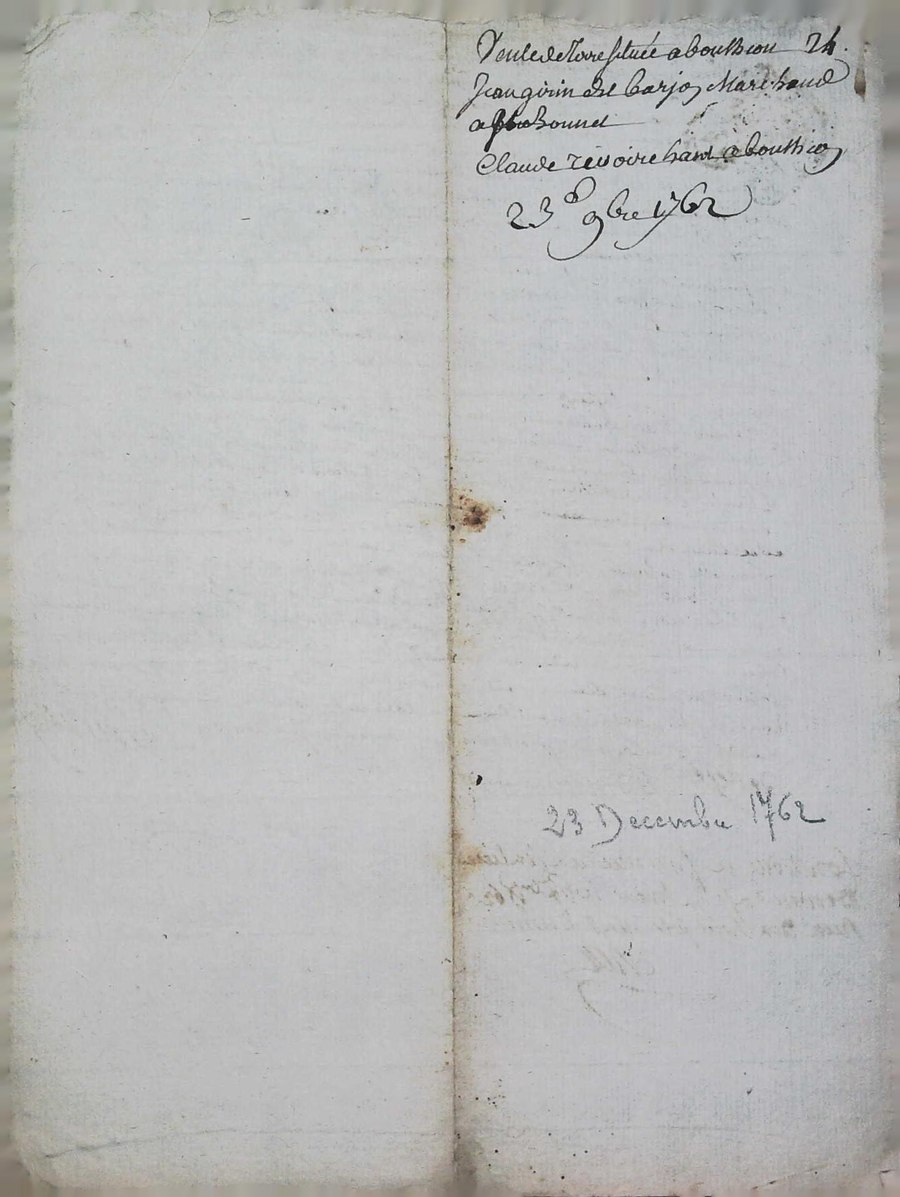 Vente de Terre située a bouthion 24.
Jean girin dit barjon Marchand
a St Bonnet
Claude revoire hant a bouthion
23e 9bre 1762
23 Decembre 1762